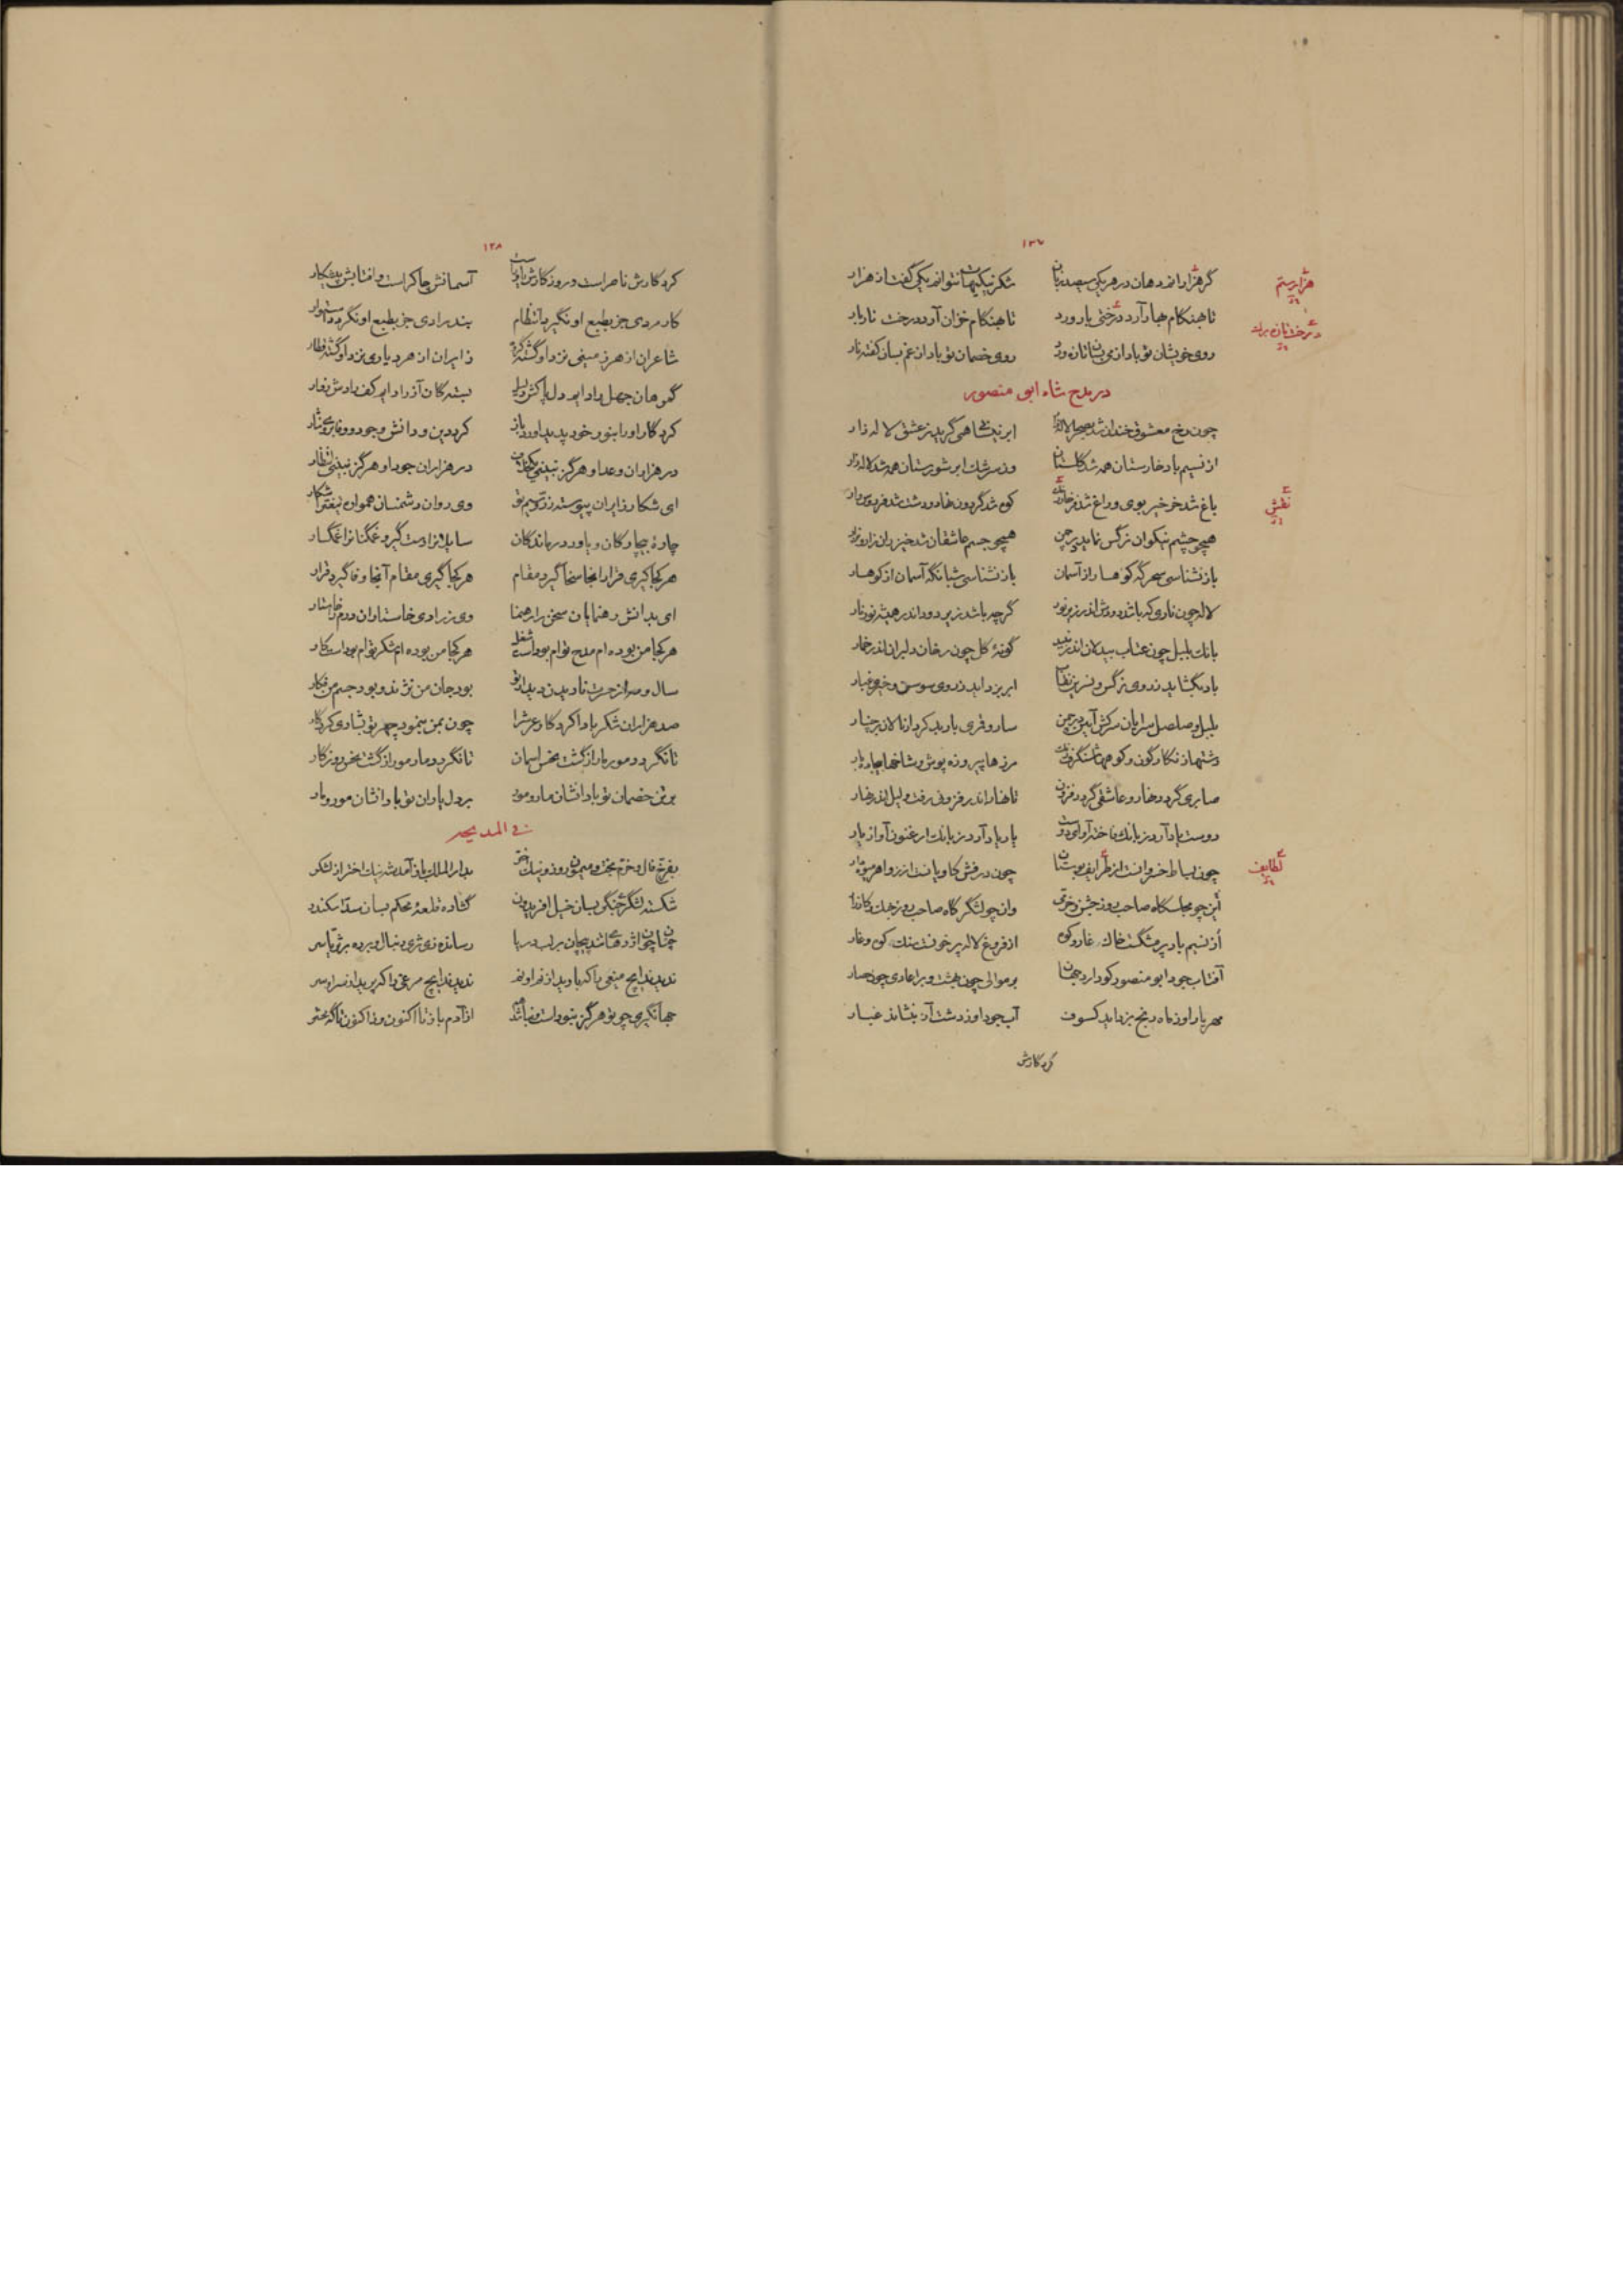 ۱۳۷
گر هزار اندر دهان در هر یکی سیصد زبان شکر نیکیهات نتوانم یکی گفت از هزار
هزار رستم
تا بهنگام بهار آرد درختی بار ورد تا بهنگام خزان آرد درخت نار بار
روی خویشان تو باد از می بسان نان ورد روی خصمان تو باد از غم بسان کفته نار
در مدح شاه ابی منصور
چون رخ معشوق خندان شد بصحرا لاله زار ابر نیسانی همی گرید ز عشق لاله زار
از نسیم باد خارستان همه شد گلستان وز سرشک ابر شورستان همه شد لاله زار
باغ شد خرخیز بوی و راغ شد فرخار کوه شد گردون نهاد و دشت شد فردوس وار
نقش
همچو چشم نیکوان نرگس نماید در چمن همچو جسم عاشقان شد خیزران زار و نزار
باز نشناسی سحرگه کوهسار از آسمان باز نشناسی شبانگه آسمان از کوهسار
لاله چون ناری که باشد دودش اندر زیر نور گرچه باشد زیر دود اندر همیشه نور نار
بانک بلبل چون عتاب بیدلان اندر نبید گونهٔ گل چون رخان دلبران اندر خمار
باد بگشاید ز روی نرگس و نسرین نقاب ابر بزداید ز روی سوسن و خیری غبار
بلبل و صلصل سرایان سرکش آید در چمن سار و قمری باربد کردار نالان بر چنار
دشتها زنگارگون و کوهها شنگرف مرزها پیروزه پوش و شاخها بیجاده بار
صابری گردد نهار و عاشقی گردد فزون تا نهار اندر فزونی رفت و لیل اندر نهار
دوست یاد آرد ز بانک فاخته آوای دوست یار یاد آرد ز بانک ارغنون آواز یار
چون بساط خسروانست از طرایف بوستان چون درفش کاویانست از زواهر میوه دار
لطایف
این چو مجلسگاه صاحب روز جشن و خرمی وان چو لشگرگاه صاحب روز جنک و کارزار
از نسیم باد پر مشگست خاک غار و کوه از فروغ لاله پر خونست سنک کوه و غار
آفتاب جود ابو منصور کو دارد جهان بر موالی چون بهشت و بر اعادی چون حصار
مهر یار او ز ماه رنج بزداید کسوف آب جود او ز دشت آز بنشاند غبار
کردگارش
۱۳۸
کردگارش ناصر است و روزگارش یاور است آسمانش چاکر است و افتابش پیشکار
کار مردی جز بطبع او نگیرد انتظام بند رادی جز بطبع او نگردد استوار
شاعران از هر زمینی نزد او گشته گروه زایران از هر دیاری نزد او گشته قطار
گمرهان جهل را داید دل پاکش دلیل بستگان آز را داید کف رادش
کردگار او را بنور خود پدید اورد باز کرد دین و دانش وجود و وفا بروی نثار
در هزاران وعد او هرگز نبینی یک در هزاران جود او هرگز نبینی انتظار
ای شکار زایران پیوسته زر و سیم تو وی روان دشمنان همواره تیغت را شکار
چارهٔ بیچارگان و یاور درماندگان سایلانرا دست گیر و غمگنانرا غمگسار
هر کجا گیری قرار انجا سخا گیرد مقام هر کجا گیری مقام آنجا وفا گیرد قرار
ای بدانش رهنمایان سخن را رهنما وی برادی خاستاران درم را خاستار
هر کجا من بوده ام مدح توام بوداست شغل هر کجا من بوده ام شکر توام بوداست کار
سال و مه از حسرت نادیدن دیدار تو بود جان من نژند و بود جسم من فکار
صد هزاران شکر بادا کردگار عرش را چون بمن بنمود چهر تو بشادی کردگار
تا نگردد مور مار از گشت نحس اسمان تا نگردد مار مور از گشت نحس روزگار
بر تن خصمان تو بادا نشان مار و مور بر دل یاران تو بادا نشان مور و مار
فی المدیحه
بفرخ فال و خرم بخت و میمون روز و نیک اختر بدار الملک باز آمد شه نیک اختر از لشکر
شکسته لشگر جنگی بسان خیل افریدون گشاده قلعهٔ محکم بسان سد اسکندر
چنان چون اژدهائی شد پیچان بر لب دریا رسانده زی ثری دنبال و برده بر ثریا سر
ندیدند ایچ مرغی را که پرید از سر
جهانگیری چو تو هرگز نبوداست و نباشد از آدم باز تا اکنون وز اکنون تا گه محشر